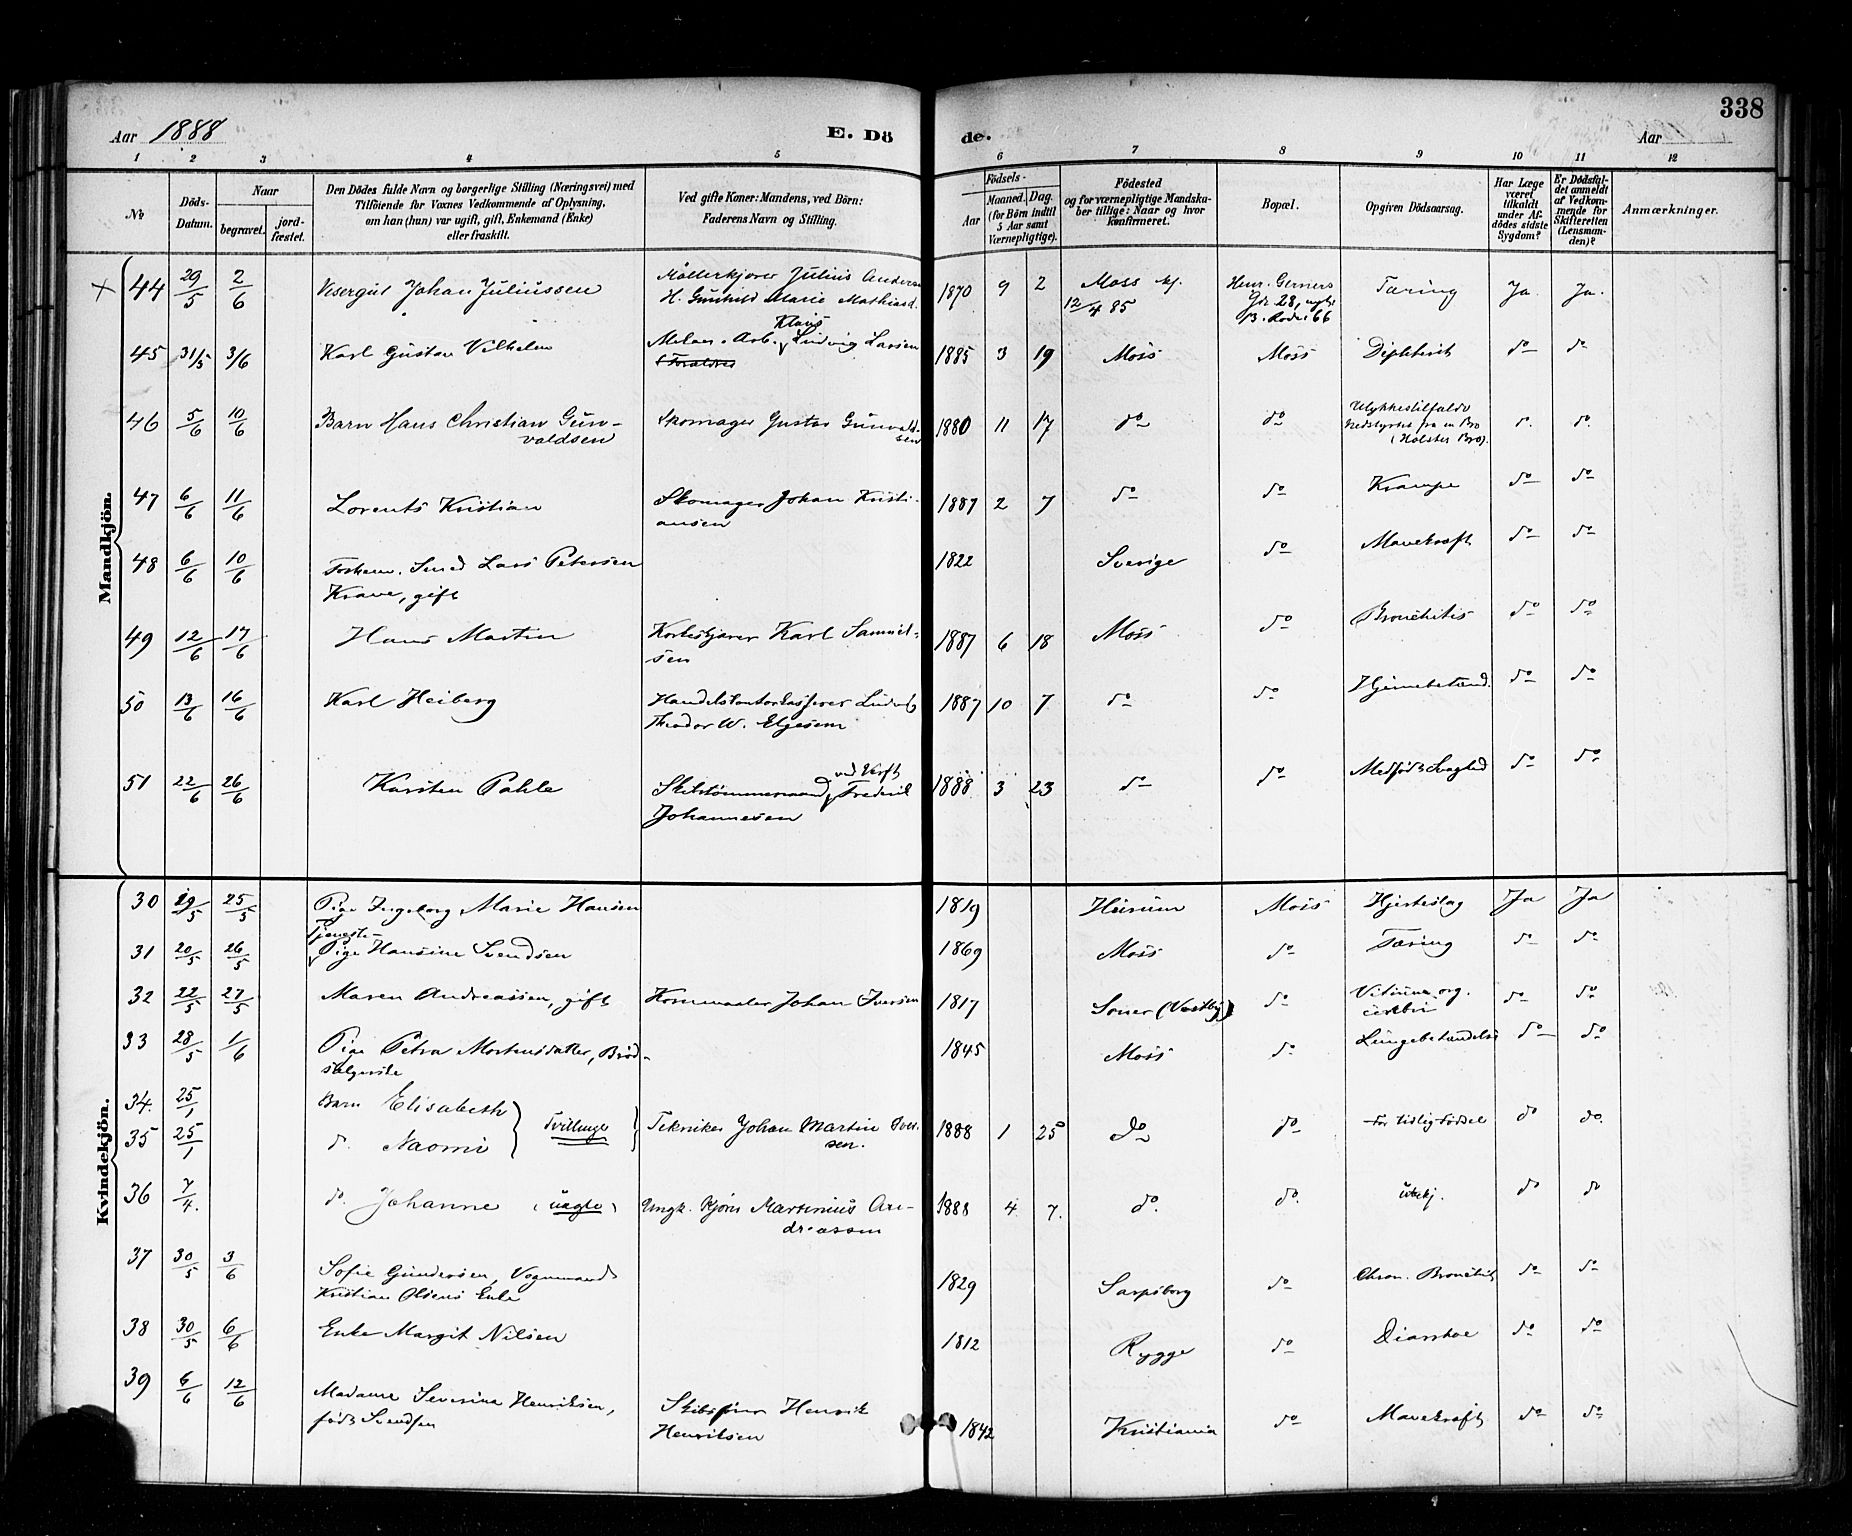 338
Aar 1888 E. Dö de. Aar
1 2 3 4 5 6 7 8 9 10 11 12
No
Döds-Datum.
Naar begravet. jordfæstet.
Den Dödes fulde Navn og borgerlige Stilling (Næringsvei) med Tilföiende for Voxnes Vedkommende af Oplysning, om han (hun) var ugift, gift, Enkemand (Enke) eller fraskilt.
Ved gifte Koner: Mandens, ved Börn: Faderens Navn og Stilling.
Födsels- Aar Maaned. Dag. (for Börn indtil 5 Aar samt Værnepligtige).
Födested og for værnepligtige Mandskaber tillige: Naar og hvor konfirmeret.
Bopæl.
Opgiven Dödsaarsag.
Har Læge været tilkaldt under Afdödes sidste Sygdom?
Er Dödsfaldet anmeldt af Vedkommende for Skifteretten (Lensmanden)?
Anmærkninger.
Mandkjön.
44 29/5 2/6 Visergut Johan Juliussen Møllerkjører Julius Anders 1870 9 2 Moss kf. Henr. Gerners Tæring Ja Ja.
H. Gunhild Marie Mathiasd. 12/4 85 Gd. 28,
B. Rode 66
45 31/5 3/6 Karl Gustav Vilhelm Arb. Klaus Ludvig Larsen 1885 3 19 Moss Moss Diphterit do do
46 5/6 10/6 Barn Hans Christian Gun- Skomager Gustav Gunvald- 1880 11 17 do do Ulykkestilfælde do do
valdsen sen nedstyrtet fra en Bro
(Holster Bro).
47 6/6 11/6 Lorents Kristian Skomager Johan Kristi- 1887 2 7 do do Krampe do do
ansen
48 6/6 10/6 Forhenv. Smed Lars Petersen 1822 Sverige do Mavekræft do do
Krave, gift
49 12/6 17/6 Hans Martin Karl Samuel- 1887 6 18 Moss do Bronchitis do do
sen
50 13/6 16/6 Karl Heiberg Ludvig 1887 10 7 do do Hjernebetænd. do do
Theodor W. Elgesem
51 22/6 26/6 Karsten Pahle Skibstømmermand ved Verft Frederik 1888 3 23 do do Medfødt Svaghed do do
Johannesen
Kvindekjön.
30 19/5 25/5 Pige Ingeborg Marie Hansen 1819 Hurum Moss Hjerteslag Ja Ja
31 20/5 26/5 Tjeneste-Pige Hansine Svendsen 1869 Moss do Tæring do do
32 22/5 27/5 Maren Andreassen, gift Kornmaaler Johan Iversen 1817 Soner (Vestby) do Vitium org. do do
33 28/5 1/6 Pige Petra Mortensdatter, Brød- 1845 Moss do Lungebetændelse do do
sælgerske
34. 25/1 Barn Elisabeth
35 25/1 d. Naomi Tvillinger Tekniker Johan Martin Iver- 1888 1 25 do do For tidlig Fødsel do do.
sen.
36 7/4. do. Johanne (uægte) Ungk. Martinius An- 1888 4 7. do. do. ubekj. do do
dreassen
37 30/5 3/6 Sofie Gundersen, Vognmand 1829 Sarpsborg do Chron. Bronchit do do
Kristian Olsens Enke
38 30/5 6/6 Enke Margit Nilsen 1812 Rygge do Diarrhoe do do
39 6/6 12/6 Madame Severina Henriksen, Skibsfører Henrik 1842 Kristiania do Mavekræft do do
født Svendsen Henriksen